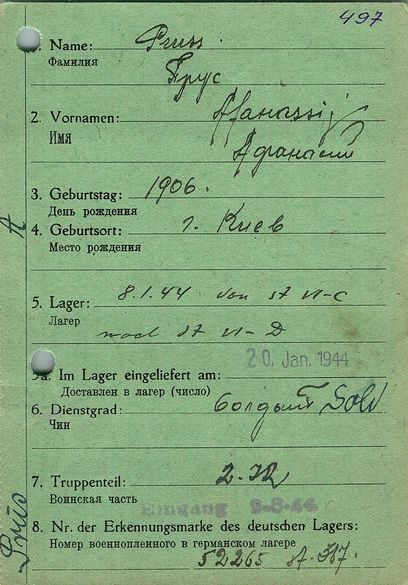 497
1. Name: Pruss
Фамилия Прус
2. Vornamen: Afanassij
Имя Афанасий
3. Geburtstag: 1906.
День рождения
4. Geburtsort: г. Киев
Место рождения
5. Lager: 8.1.44 von st VI-C
Лагер
nach st VI-D
20. Jan. 1944
5a. Im Lager eingeliefert am:
Доставлен в лагер (число)
6. Dienstgrad: Sold
Чин
7. Truppenteil:
Воинская часть
Eingang 9-3-44
8. Nr. der Erkennungsmarke des deutschen Lagers:
Номер военнопленного в германском лагере
52265
A